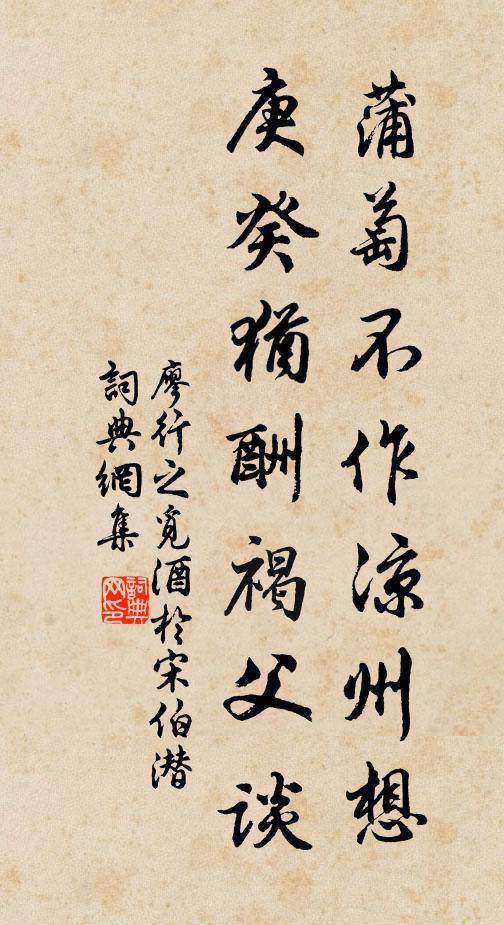 蒲萄不作凉州想
庚癸犹酬褐父谈
廖行之覓酒於宋伯潜
詞典網集
詞典網印